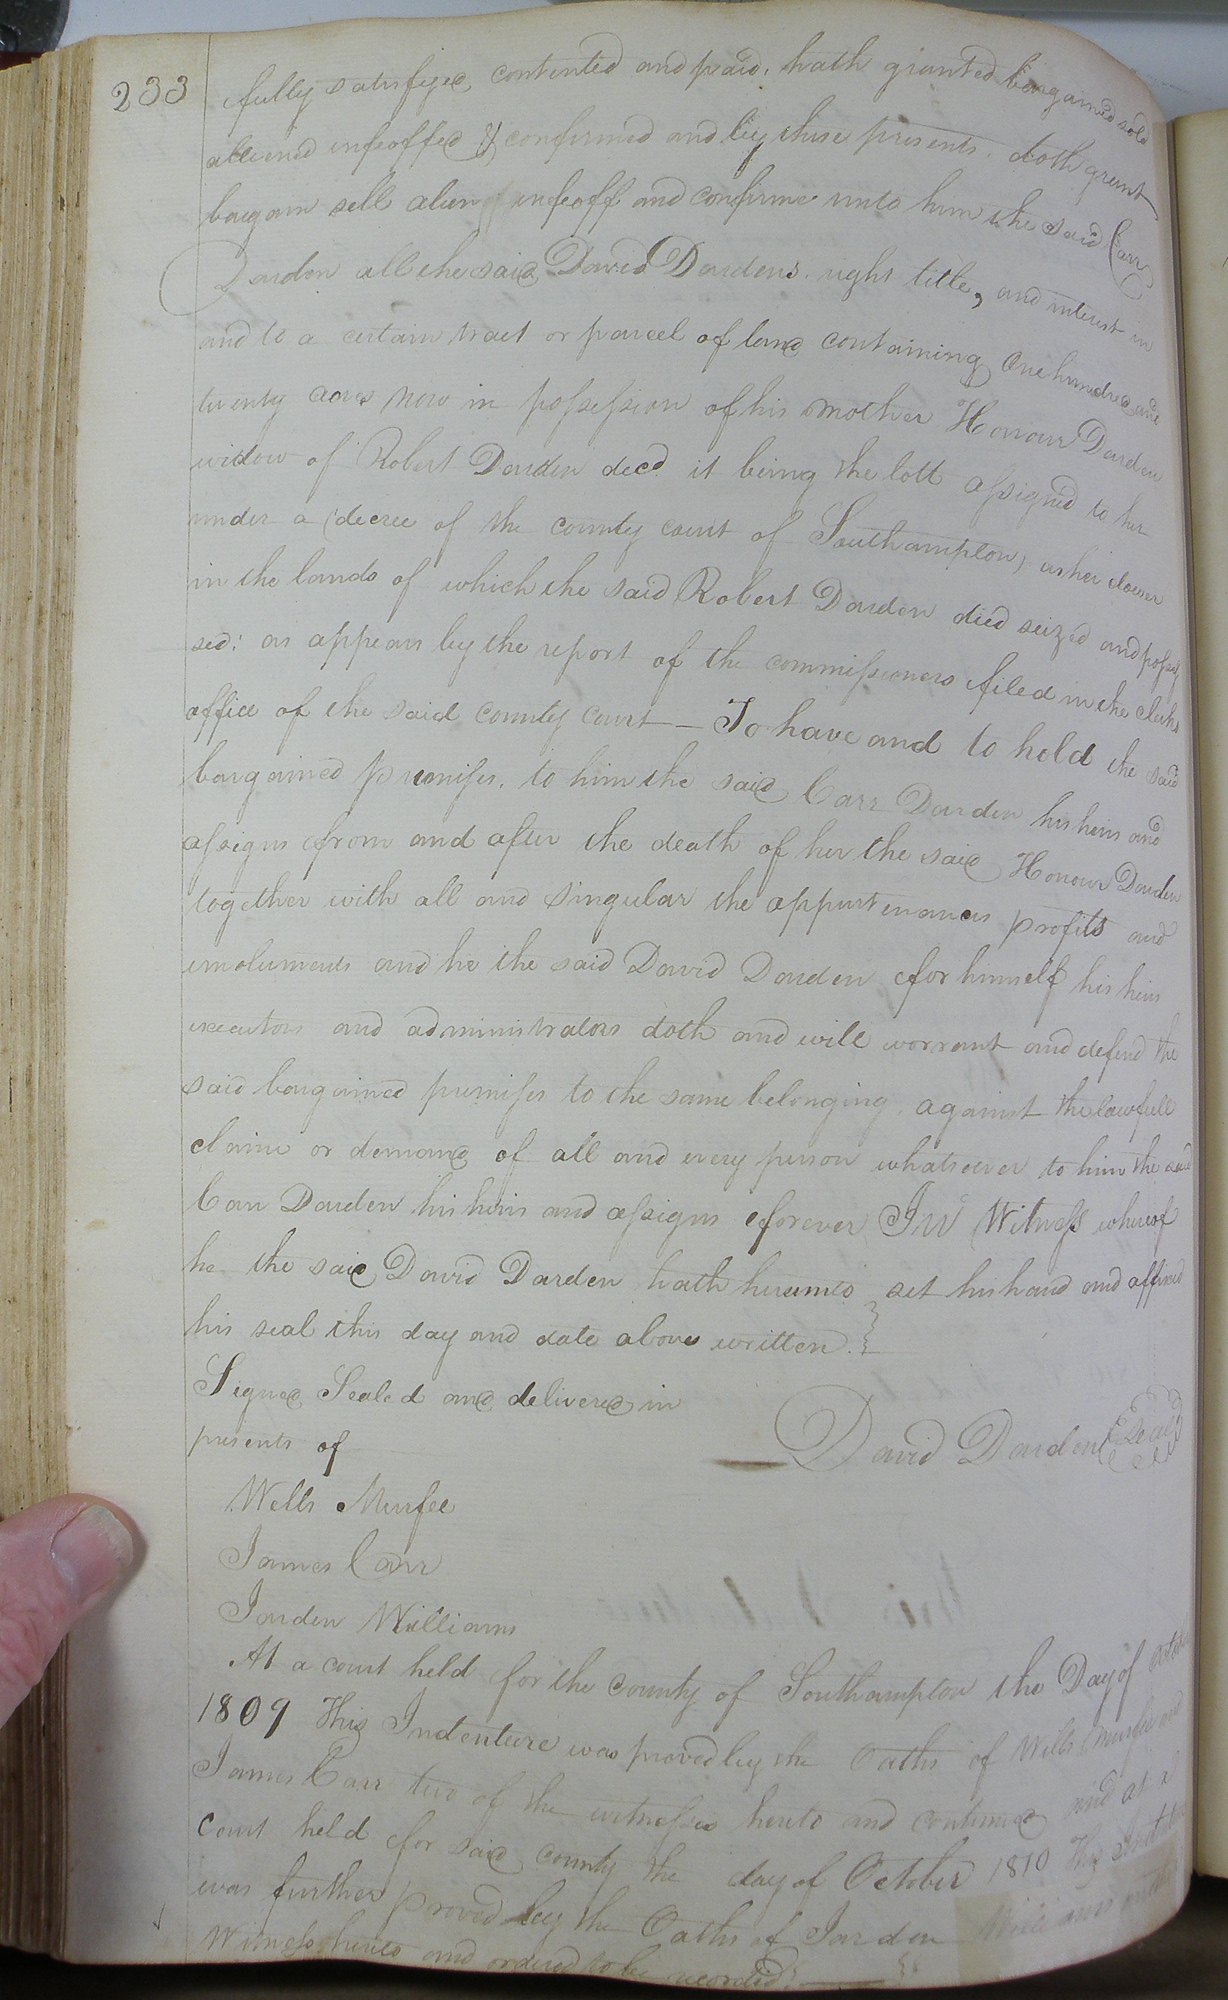 233
fully satisfyed, contented and paid, hath granted bargained sold
aliened infeoffed & confirmed and by these presents, doth grant
bargain sell alien infeoff and confirme unto him the said Carr
Darden all the said David Dardens right title, and interest in
and to a certain tract or parcel of land containing One hundred and
twenty acres now in possession of his mother Honour Darden
widow of Robert Darden decd it being the lott assigned to her
under a decree of the county court of Southampton, as her dower
in the lands of which the said Robert Darden died seized and posses
sed: as appears by the report of the commissioners filed in the clerks
office of the said county court — To have and to hold the said
bargained premises, to him the said Carr Darden his heirs and
assigns from and after the death of her the said Honour Darden
together with all and singular the appurtenances profits and
emoluments and he the said David Darden for himself his heirs
executors and administrators doth and will warrant and defend the
said bargained premises to the same belonging, against the lawfull
claime or demand of all and every person whatsoever to him the said
Carr Darden his heirs and assigns forever In Witness whereof
he the said David Darden hath hereunto set his hand and affixed
his seal this day and date above written.
Signed Sealed and delivered in
presents of
David Darden (Seal)
Wells Murfee
James Carr
Jorden Williams
At a court held for the county of Southampton the Day of October
1809 This Indenture was proved by the Oaths of Wells Murfee and
James Carr two of the witnesses hereto and continued and at a
court held for said county the day of October 1810 This Indenture
was further proved by the Oaths of Jorden Williams another
Witness hereto and ordered to be recorded.